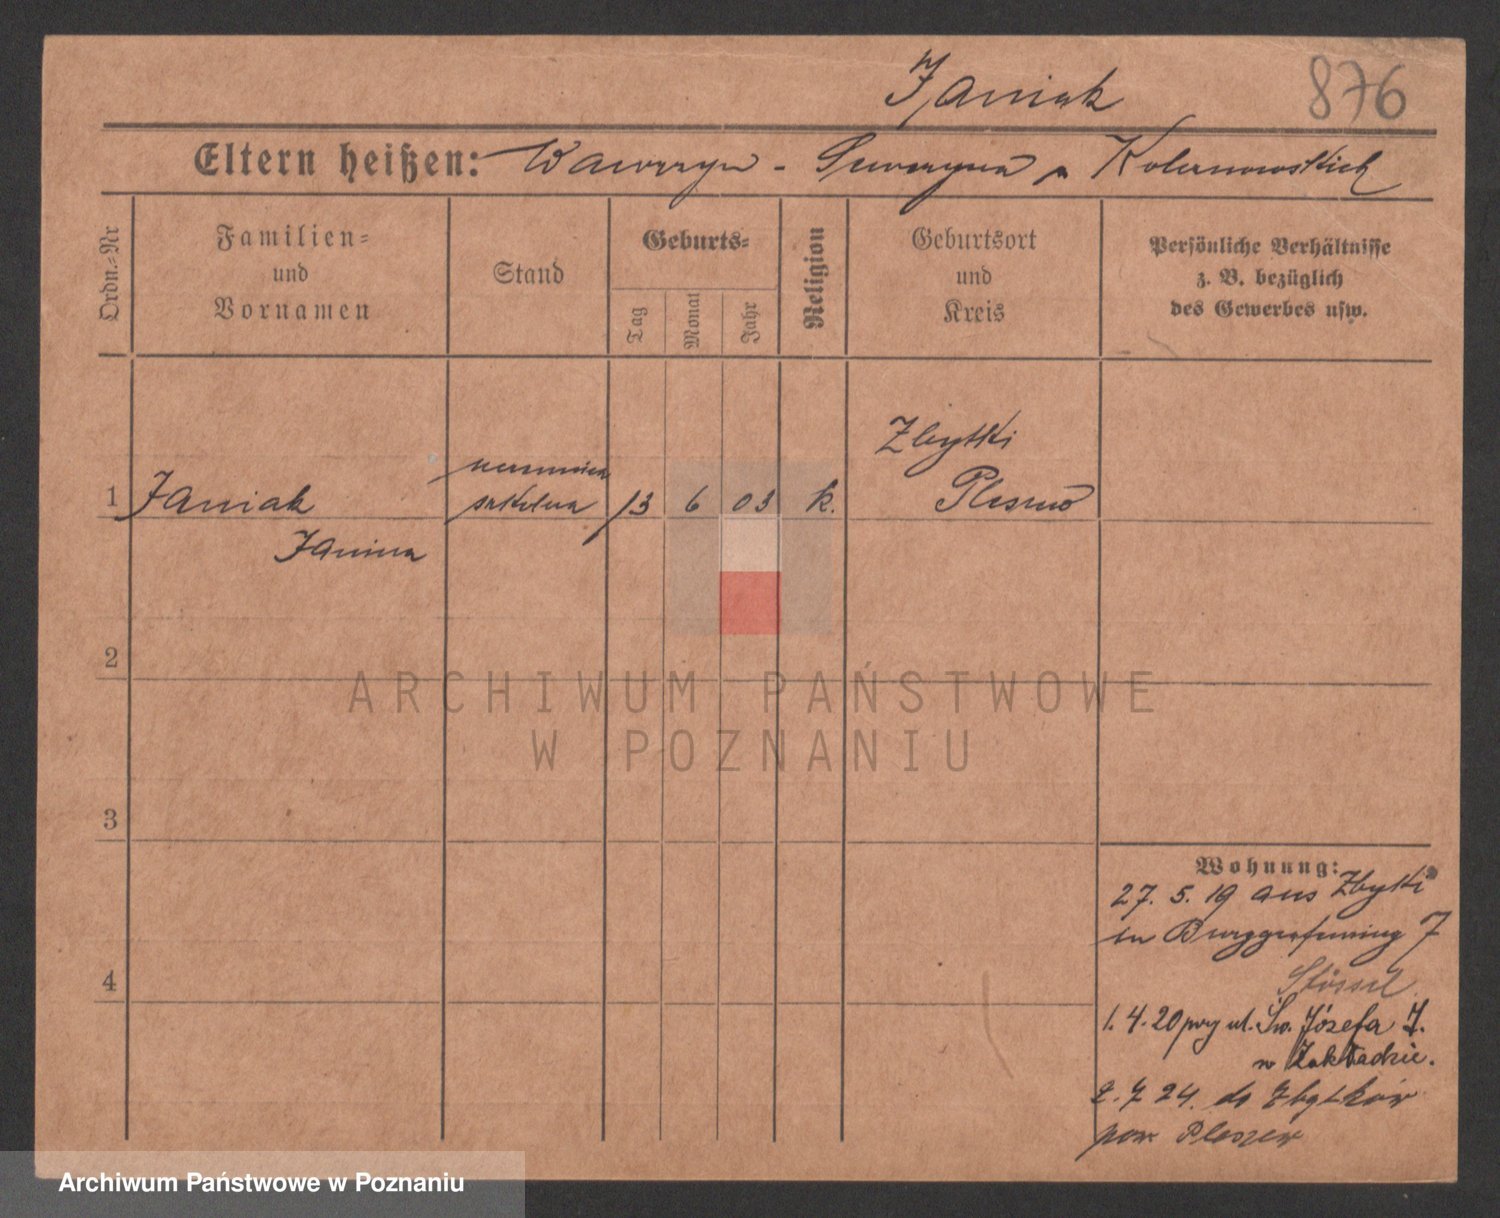 Janiak
876
Eltern heißen: Wawrzyn - Seweryna
Ordn.-Nr
Familien-
und
Vornamen
Stand
Geburts-
Tag
Monat
Jahr
Religion
Geburtsort
und
Kreis
Persönliche Verhältnisse
z. B. bezüglich
des Gewerbes usw.
1
Janiak
Janina
uczennica
szkolna
13
6
03
k.
Zbytki
Pleszew
2
3
4
Wohnung:
27. 5. 19 aus Zbytki
in Burggrafenring 7
Stössel
1. 4. 20 przy ul. Św. Józefa 7.
w Zakładzie.
2. 7 24. do Zbytków
pow Pleszew
ARCHIWUM PAŃSTWOWE
W POZNANIU
Archiwum Państwowe w Poznaniu